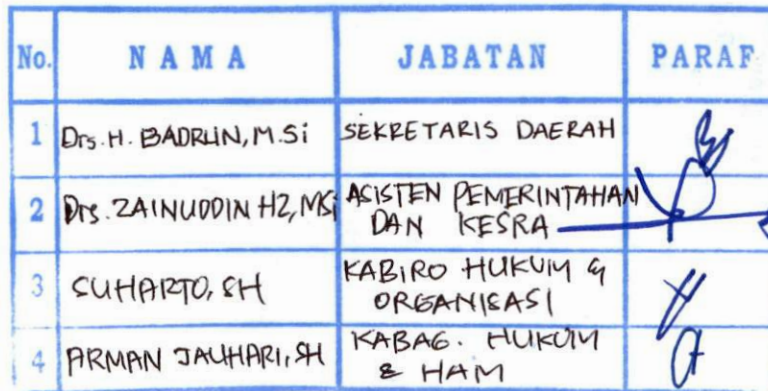 No. N A M A JABATAN PARAF
1 Drs. H. BADRUN, M.Si SEKRETARIS DAERAH
2 Drs. ZAINUDDIN HZ, MSi ASISTEN PEMERINTAHAN
DAN KESRA
3 SUHARTO, SH KABIRO HUKUM &
ORGANISASI
4 ARMAN JAUHARI, SH KABAG. HUKUM
& HAM